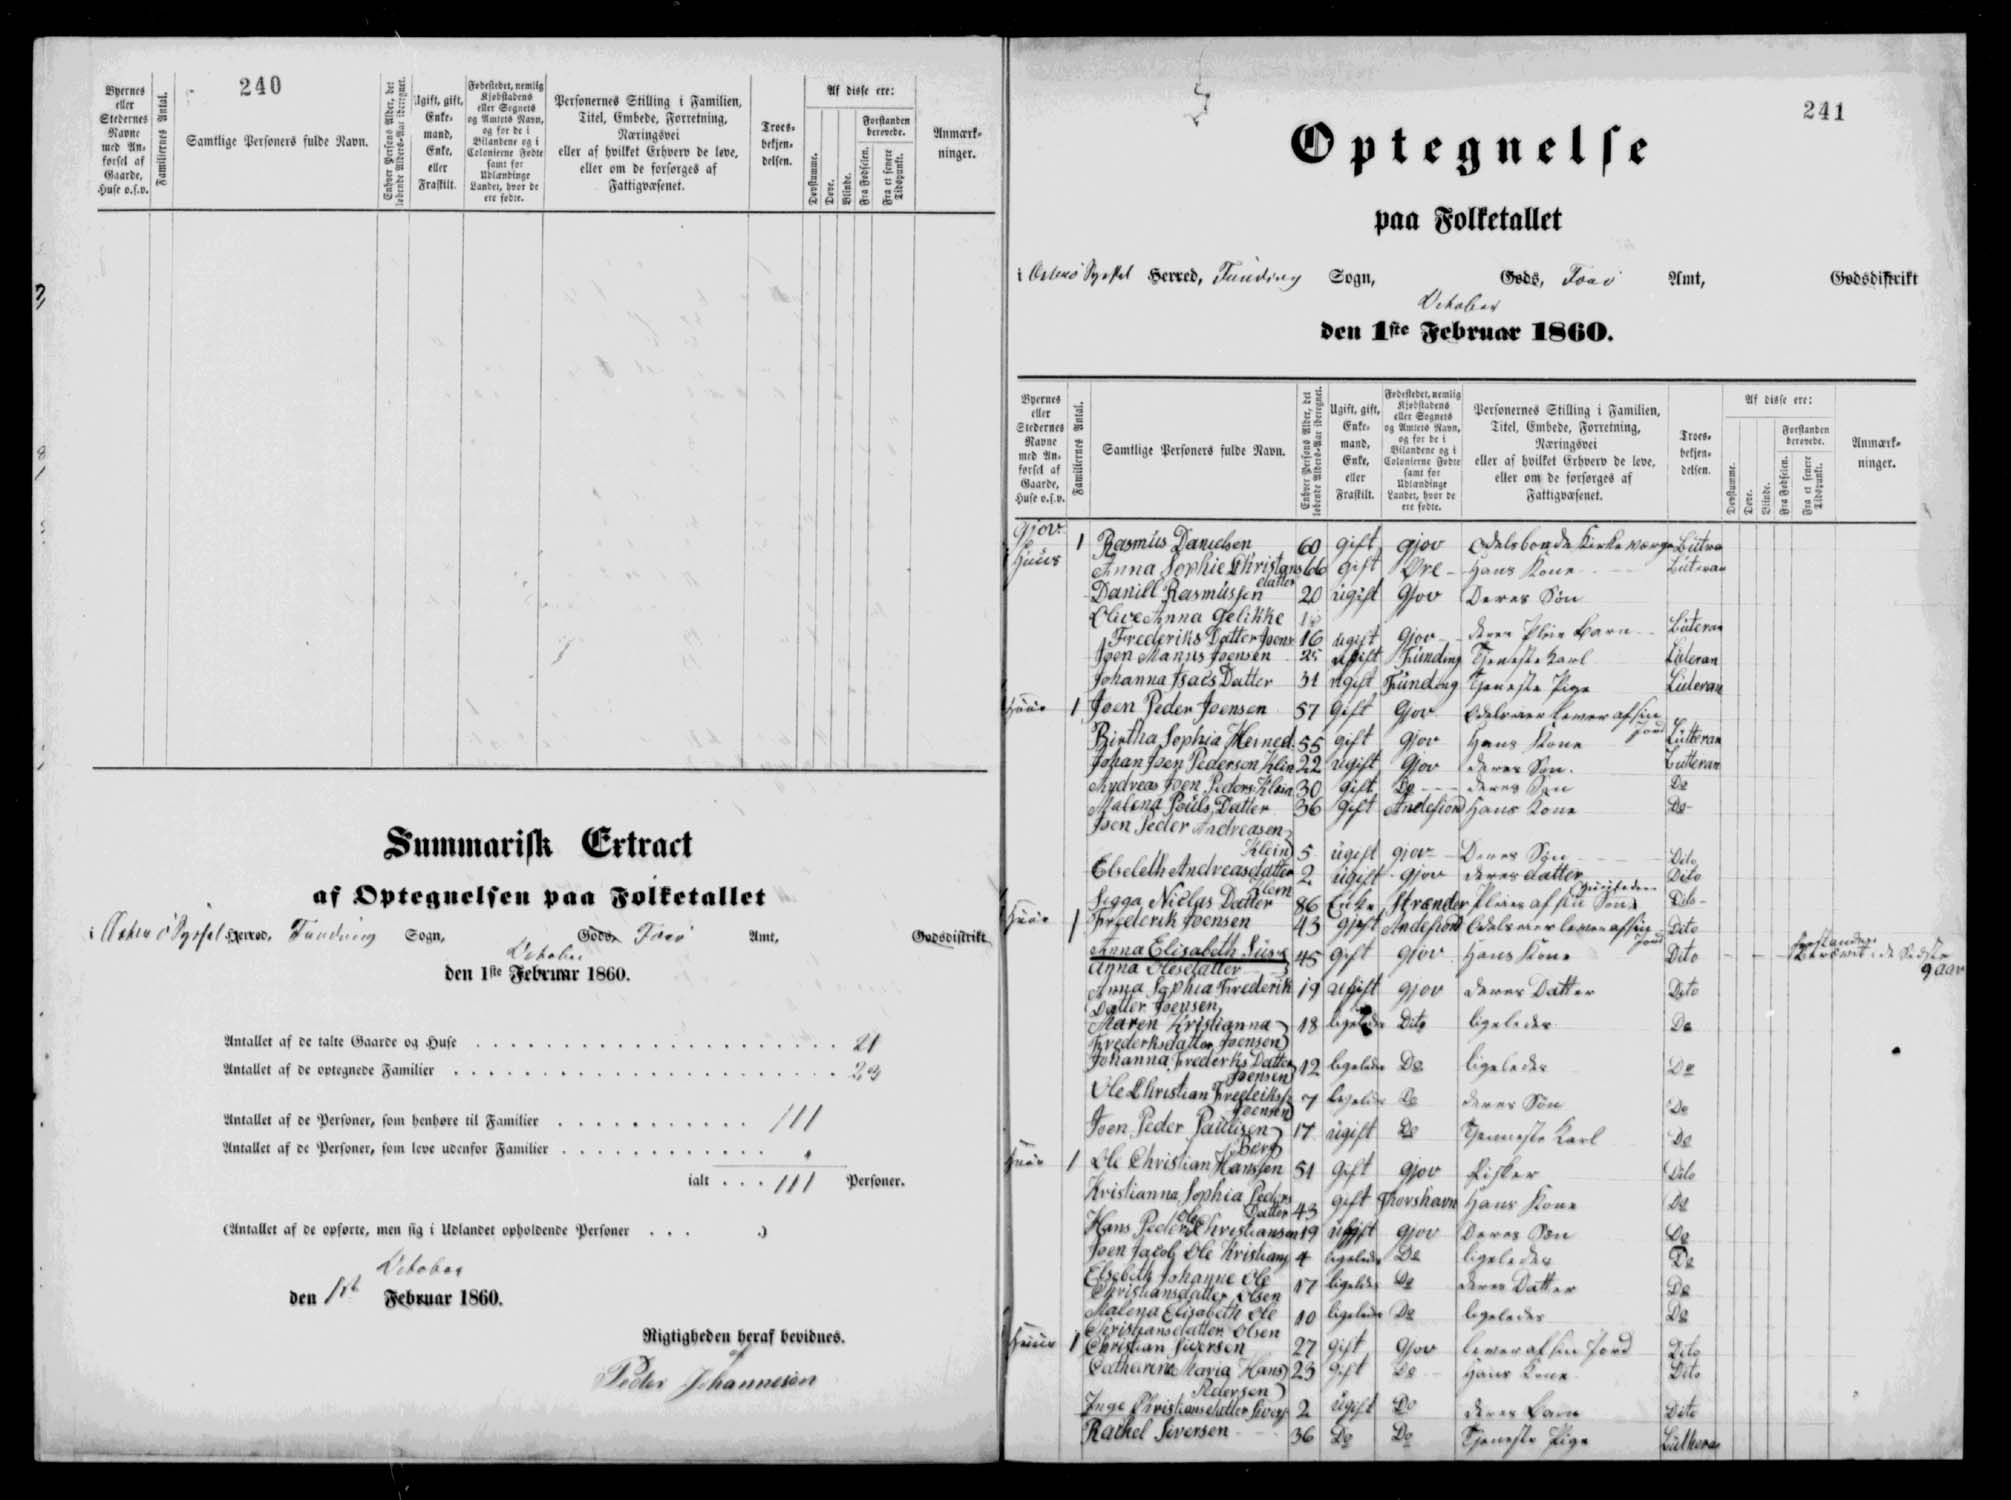 240
Byernes eller Stedernes Navne med Anførsel af Gaarde, Huse o.s.v.
Familiernes Antal.
Samtlige Personers fulde Navn.
Enhver Persons Alder, det løbende Alders-Aar iberegnet.
Ugift, gift, Enkemand, Enke, eller Fraskilt.
Fødestedet, nemlig Kjøbstadens eller Sognets og Amtets Navn, og for de i Bilandene og i Colonierne Fødte samt for Udlændinge Landet, hvor de ere fødte.
Personernes Stilling i Familien, Titel, Embede, Forretning, Næringsvei eller af hvilket Erhverv de leve, eller om de forsørges af Fattigvæsenet.
Troesbekjendelsen.
Af disse ere:
Døvstumme.
Døve.
Blinde.
Forstanden berøvede.
Fra Fødselen.
Fra et senere Tidspunkt.
Anmærkninger.
Summarisk Extract
af Optegnelsen paa Folketallet
i Østerø Syssel Herred, Funding Sogn, Gods, Farø Amt, Godsdistrikt
October
den 1ste Februar 1860.
Antallet af de talte Gaarde og Huse 21
Antallet af de optegnede Familier
Antallet af de Personer, som henhøre til Familier 111
Antallet af de Personer, som leve udenfor Familier
ialt . . . 111 Personer.
(Antallet af de opførte, men sig i Udlandet opholdende Personer . . . .)
October
den 1st Februar 1860.
Rigtigheden heraf bevidnes.
af
Peder Johannesen
241
Optegnelse
paa Folketallet
i Østerø Syssel Herred, Funding Sogn, Gods, Farø Amt, Godsdistrikt
October
den 1ste Februar 1860.
Byernes eller Stedernes Navne med Anførsel af Gaarde, Huse o.s.v.
Familiernes Antal.
Samtlige Personers fulde Navn.
Enhver Persons Alder, det løbende Alders-Aar iberegnet.
Ugift, gift, Enkemand, Enke, eller Fraskilt.
Fødestedet, nemlig Kjøbstadens eller Sognets og Amtets Navn, og for de i Bilandene og i Colonierne Fødte samt for Udlændinge Landet, hvor de ere fødte.
Personernes Stilling i Familien, Titel, Embede, Forretning, Næringsvei eller af hvilket Erhverv de leve, eller om de forsørges af Fattigvæsenet.
Troesbekjendelsen.
Af disse ere:
Døvstumme.
Døve.
Blinde.
Forstanden berøvede.
Fra Fødselen.
Fra et senere Tidspunkt.
Anmærkninger.
Gjov
Huus 1 Rasmus Danielsen 60 gift gjov Odelsbonde Kirkeværge
Anna Sophie Christans datter 66 gift Øre Hans Kone Luteran
Daniel Rasmussen 20 ugift Gjov Deres Søn
Olive Anna Gelikke
Frederiks Datter Joens 16 ugift Gjov deres Pleie Barn Luteran
Joen Manus Joensen 25 ugift Funding Tjeneste Karl Luteran
Johanna Isacs Datter 31 ugift Funding Tjeneste Pige Luteran
Huus 1 Joen Peder Joensen 57 gift Gjov lever af sin Jord
Birtha Sophia Heined. 55 gift Gjov Hans Kone Lutteran
Johan Joen Pederson Klein 22 ugift Gjov deres Søn Lutteran
Andreas Joen Peders Klein 30 gift Do deres Søn Do
Malena Pouls Datter 36 gift Andefiord Hans Kone Do
Joen Peder Andreasen
Klein 5 ugift gjov Deres Søn Dito
Elseleth Andreasdatter Klein 2 ugift gjov deres datter Dito
Sigga Niclas Datter 86 Enke Strænder Pleies af sin Søn Dito
Huus 1 Frederik Joensen 43 gift Andefiord lever af sin Jord Dito
Anna Elisabeth Sus 45 gift gjov Hans Kone Dito 9 aar
Anna Olesdatter
Anna Sophia Frederik 19 ugift gjov deres Datter Dito
Datter Joensen
Maren Kristianna 18 ligeledes Dito ligeledes Do
Frederksdatter Joensen
Johanna Frederks Datter 12 ligeledes Do ligeledes Do
Joensen
Ole Christian Frederiks 7 ligeledes Do deres Søn Do
Joensen
Joen Peder Paulisen 17 ugift Do Tjenneste Karl Do
Berg
Huus 1 Ole Christian Hanssen 51 gift gjov Fisker Dito
Kristianna Sophia Peders Datter 43 gift Thorshavn Hans Kone Do
Hans Peder Ole Christiansen 19 ugift gjov Deres Søn Do
Joen Jacob Ole Kristians 4 ligeledes Do ligeledes Do
Elsebeth Johanne Ole 17 ligeledes Do deres Datter Do
Christiansdatter Olsen
Malena Elisabeth Ole 10 ligeledes Do ligeledes Do
Christiansdatter Olsen
Huus 1 Christian Siversen 27 gift Gjov lever af sin Jord Dito
Catharina Maria Hans 23 gift Do Hans Kone Dito
Pedersen
Inge Christiansdatter Sivers 2 ugift Do deres Barn Dito
Rathel Siversen 36 Do Do Tjeneste Pige Lutheran